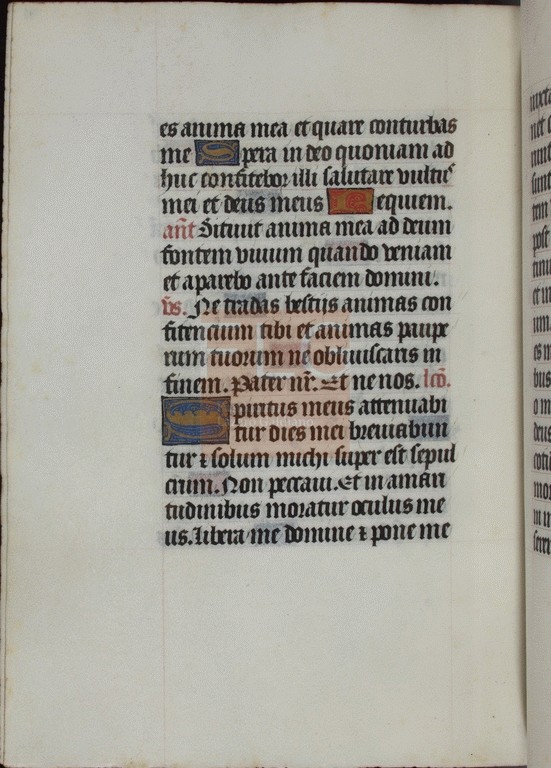 es anima mea et quare conturbas
me Spera in deo quoniam ad
huc confitebor illi salutare vultus
mei et deus meus Requiem.
añt Sitiuit anima mea ad deum
fontem viuum quando veniam
et aparebo ante faciem domini.
v̄s. Ne tradas bestijs animas con
fitencium tibi et animas paupe
rum tuorum ne obliuiscaris in
finem. Pater nr̄. Et ne nos. lcō.
Spiritus meus attenuabi
tur dies mei breuiabun
tur ⁊ solum michi super est sepul
crum. Non peccaui. Et in amari
tudinibus moratur oculus me
us. Libera me domine ⁊ pone me